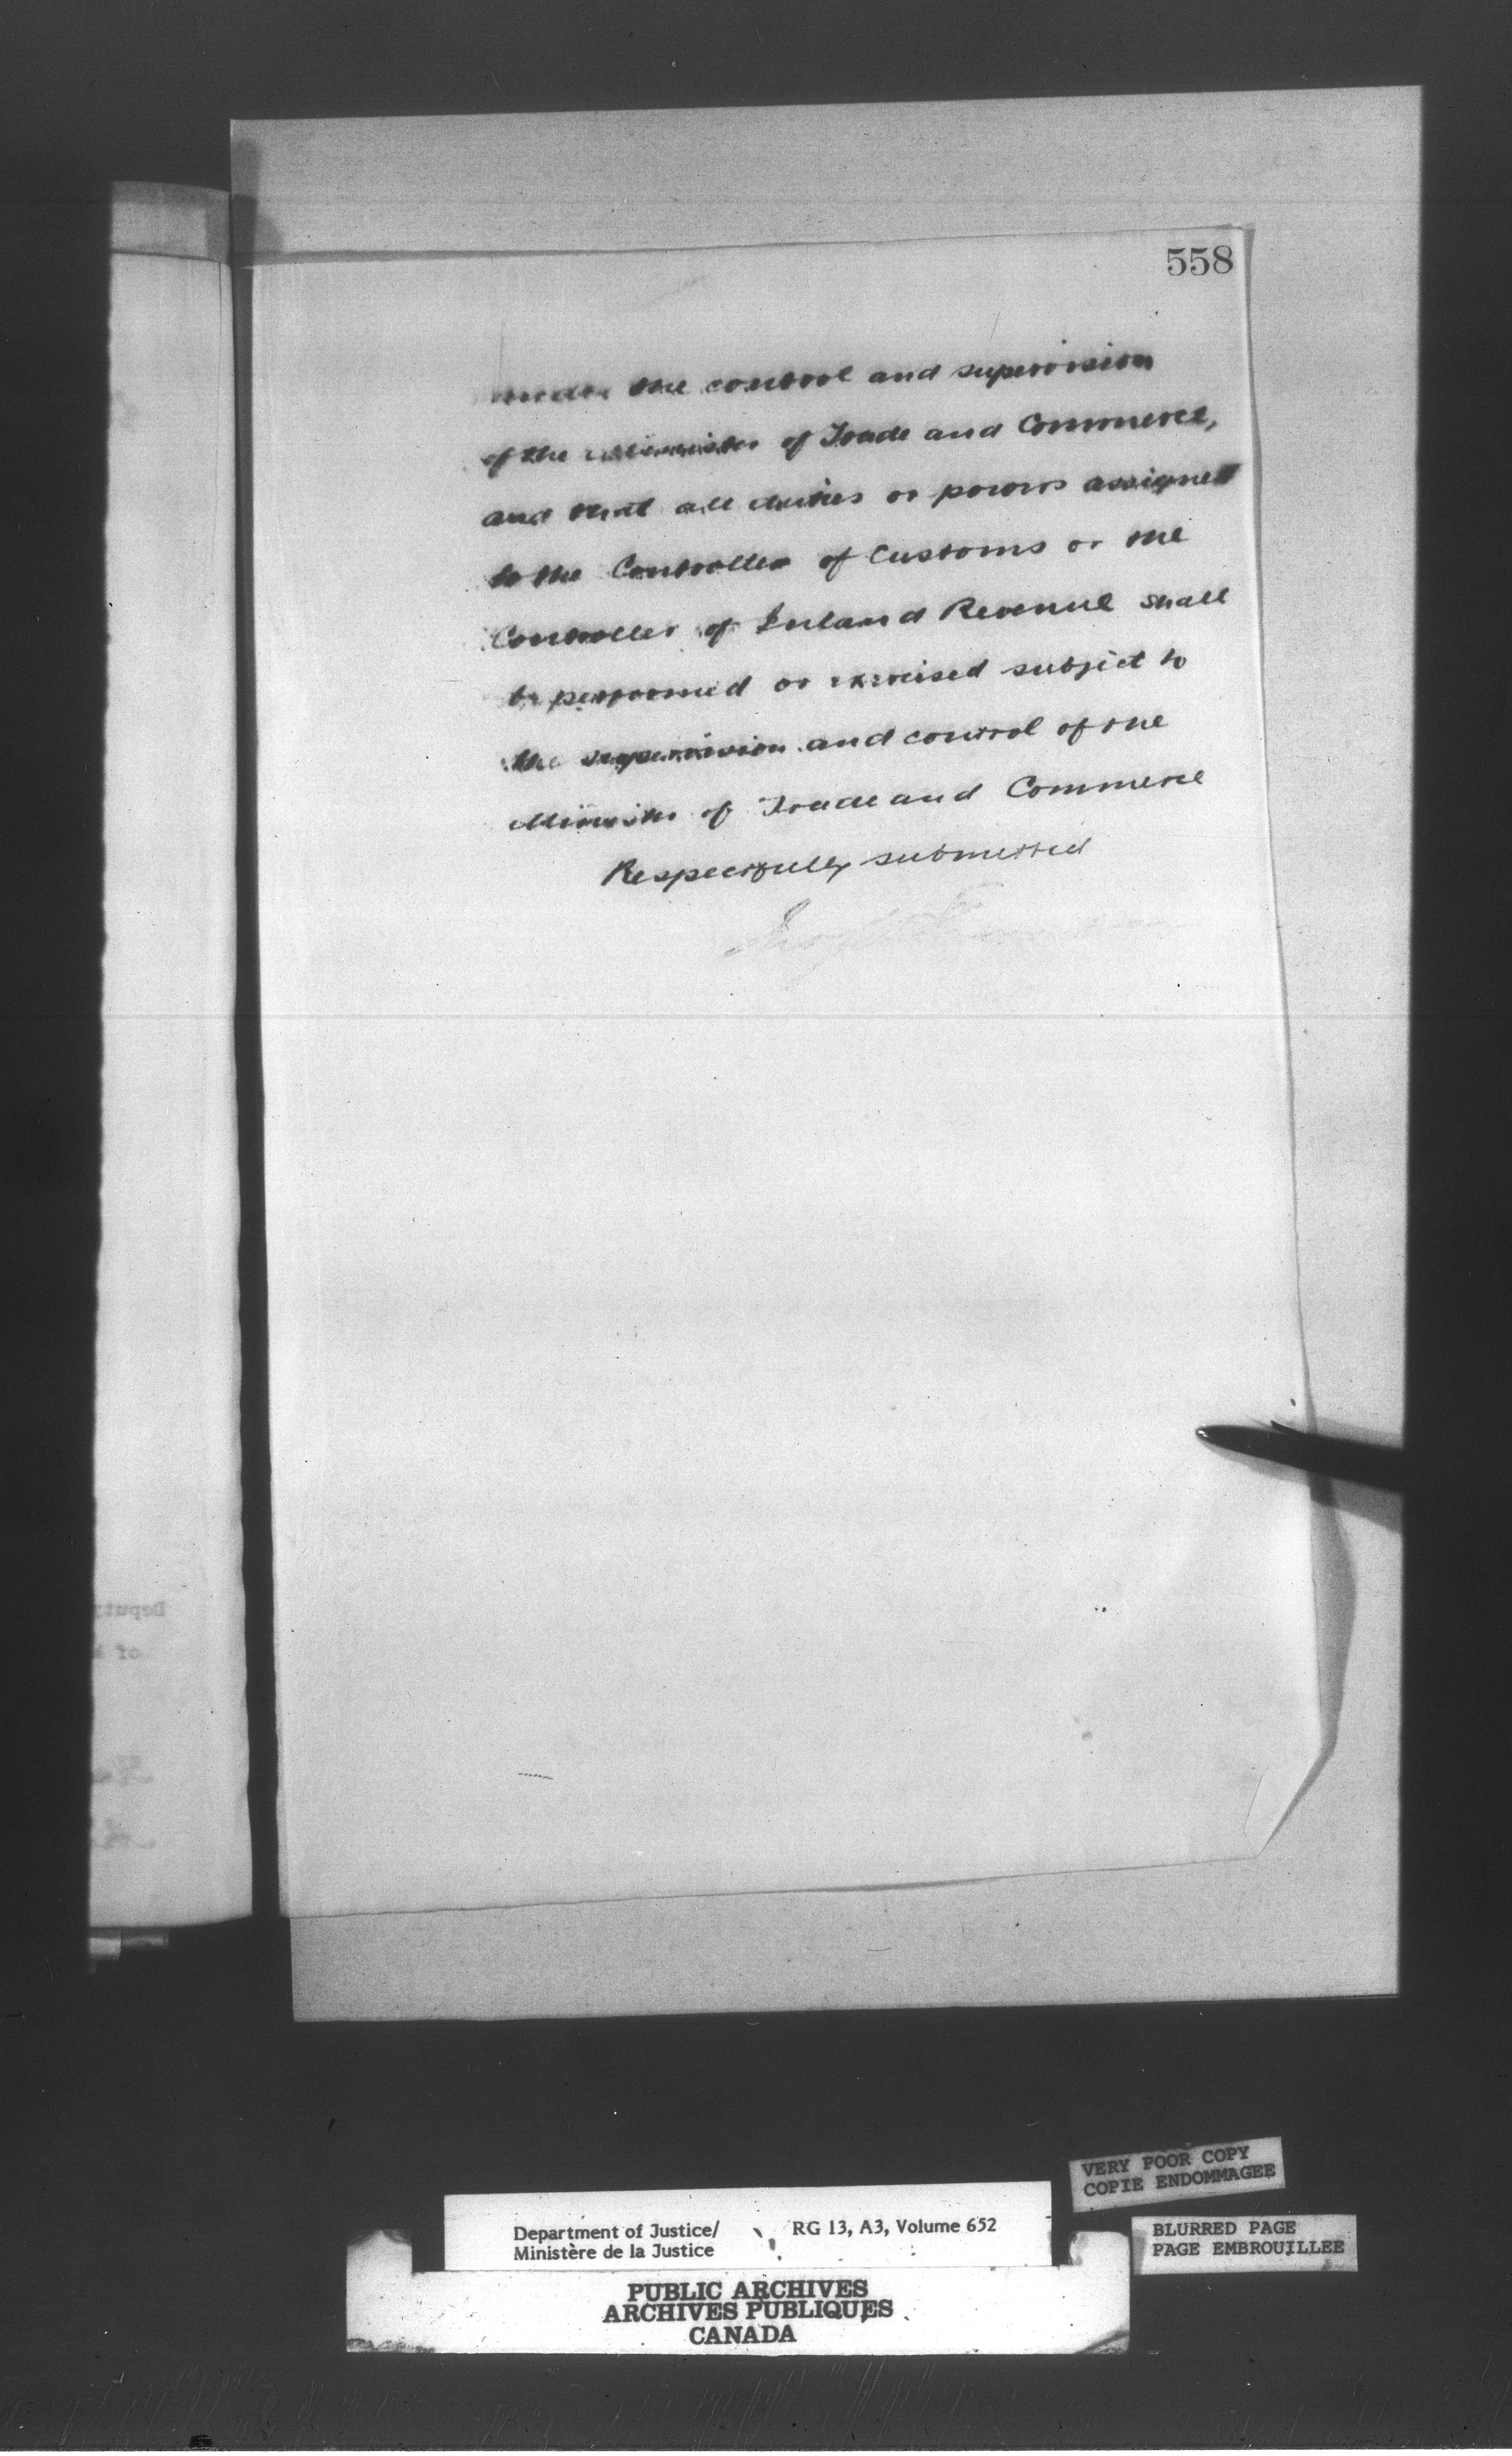 558
under the control and supervision
of the Minister of Trade and Commerce,
and that all duties or powers assigned
to the Controller of Customs or the
Controller of Inland Revenue shall
be performed or exercised subject to
the supervision and control of the
Minister of Trade and Commerce
Respectfully submitted
VERY POOR COPY
COPIE ENDOMMAGEE
Department of Justice/ RG 13, A3, Volume 652
Ministère de la Justice
BLURRED PAGE
PAGE EMBROUILLEE
PUBLIC ARCHIVES
ARCHIVES PUBLIQUES
CANADA